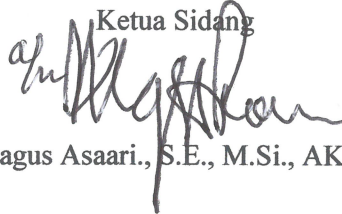 Ketua Sidang
a/n
agus Asaari., S.E., M.Si., AK